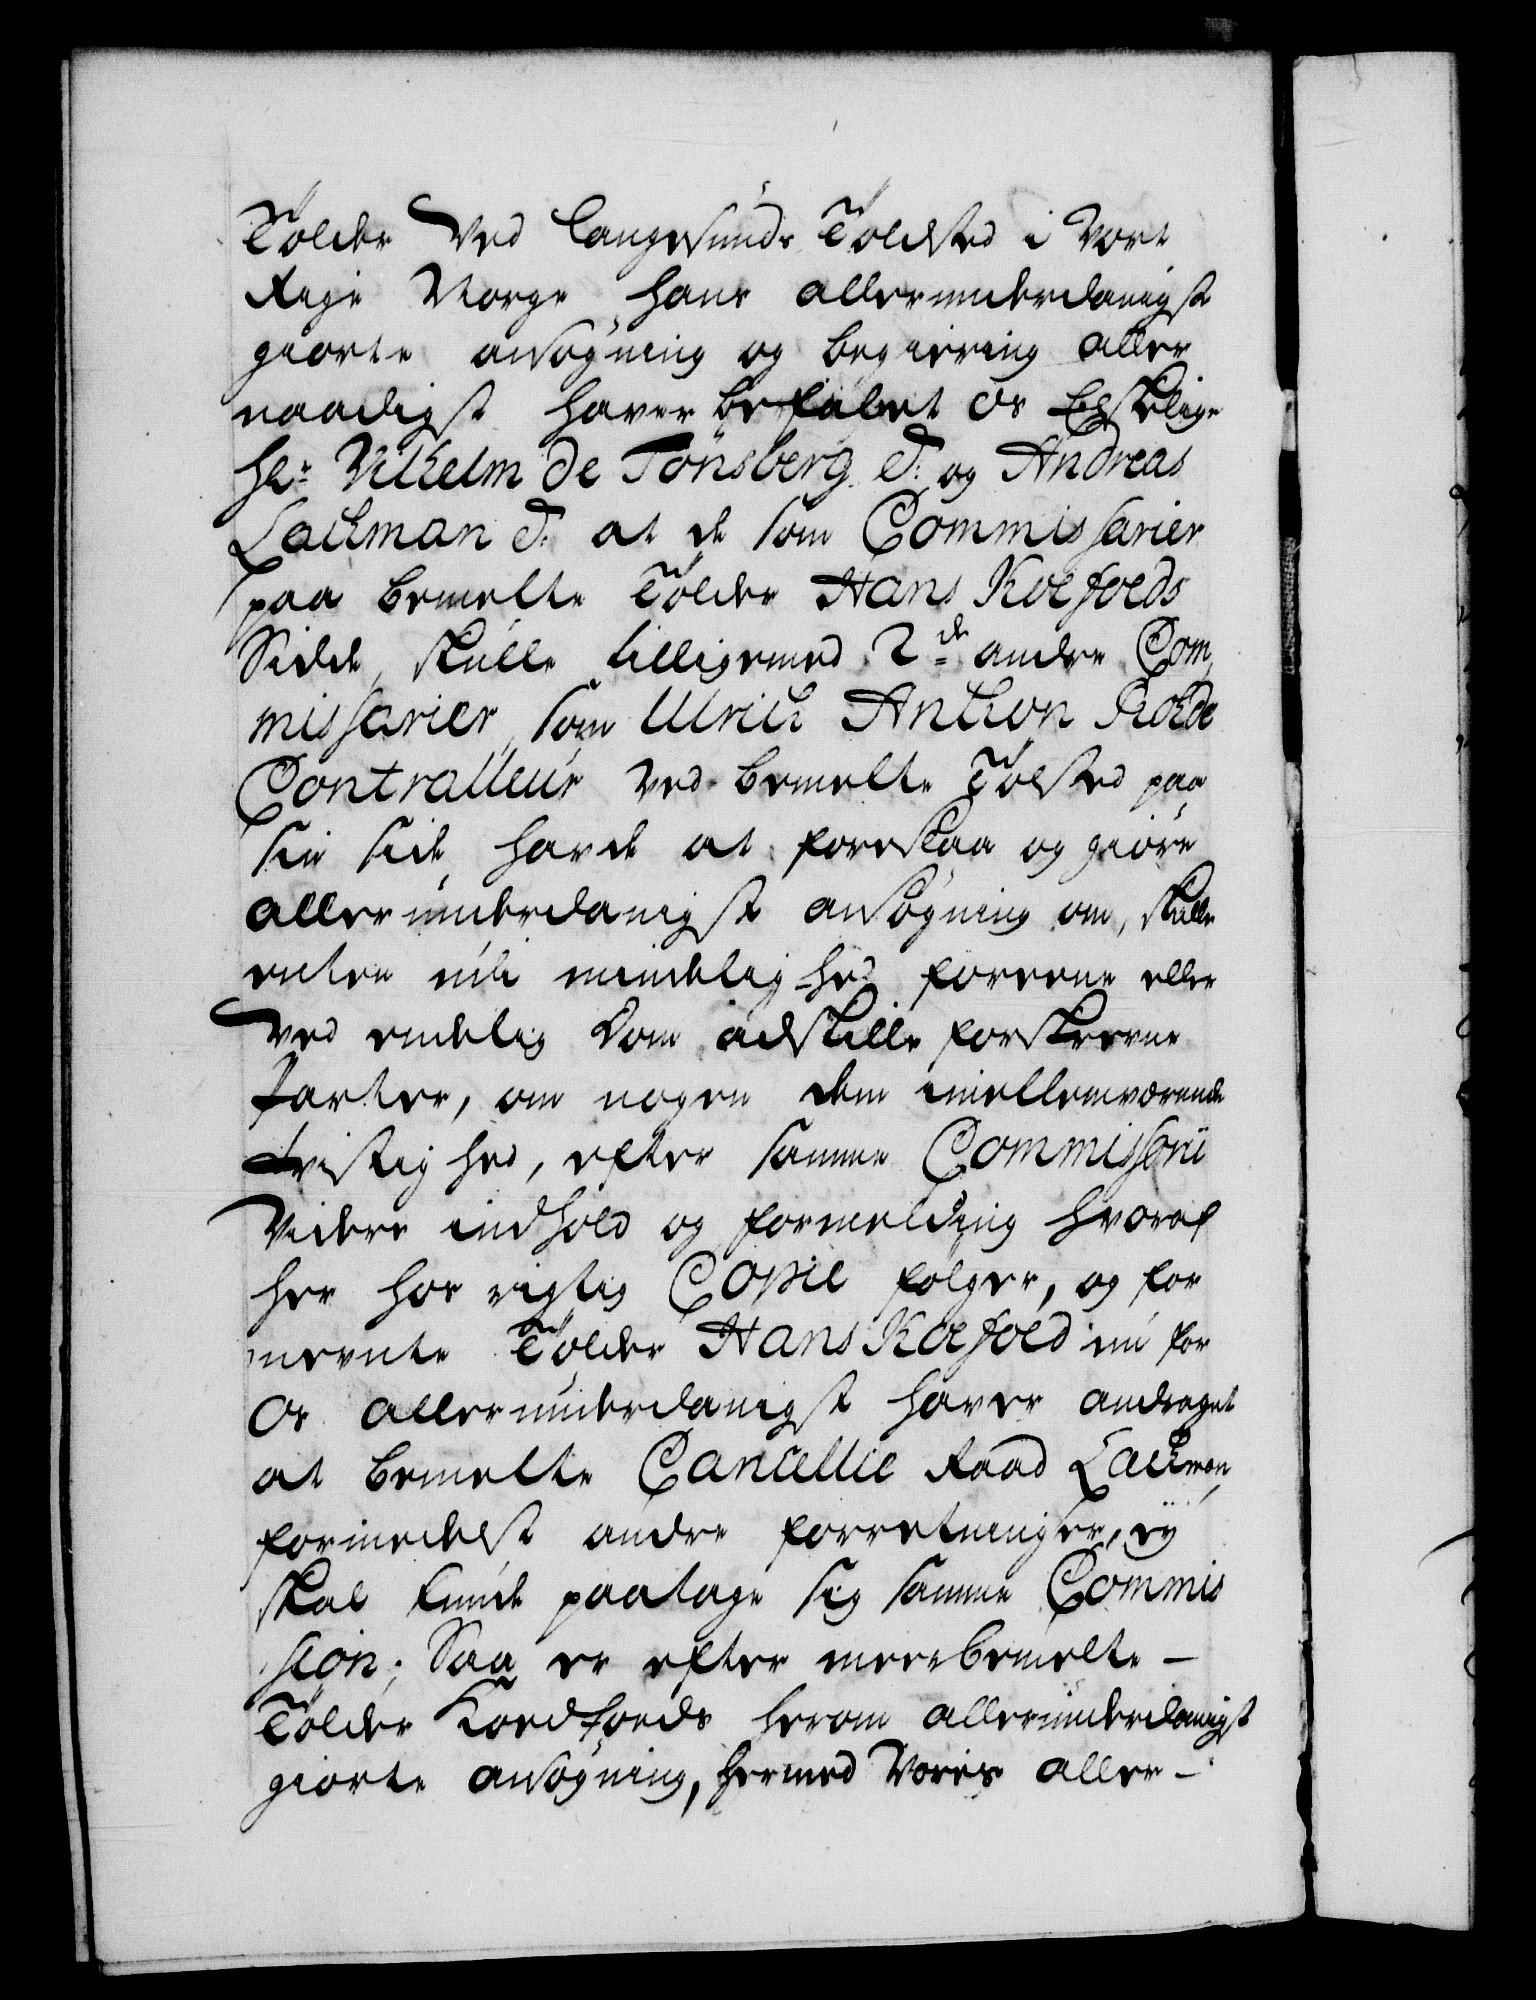 Tolder Ved Langesunds Toldsted i Vort
Rige Norge hans allerunderdanigst
giorte ansøgning og begiering aller
naadigst haver befalet Os Elskelige
Hr: Vilhelm de Tønsberg T: og Andreas
Lachman T: at de som Commissarier
paa bemelte Tolder Hans Koefoeds
Side, skulle tilligemed 2de andre Com,
missarier, som Ulrich Anthon Rohde
Contralleur ved bemelte Tolsted paa
sin side, havde at foreslaa og giøre
allerunderdanigst ansøgning om, skulle
enten udi mindelighed foreene eller
ved endelig Dom adskille forskrevne
Parter, om nogen dem imellemværende
tvistighed, efter samme Commissorii
Videre indhold og formelding hvoraf
her hos rigtig Copie følger, og for
nevnte Tolder Hans Koefoed nu for
Os allerunderdanigst haver andraget
at bemelte Cancellie Raad Lachman,
formedelst andre forretninger, ey
skal kunde paatage sig samme Commis
sion; Saa er efter meerbemelte -
Tolder Koedfoeds herom allerunderdanigst
giorte ansøgning, hermed Voris aller-